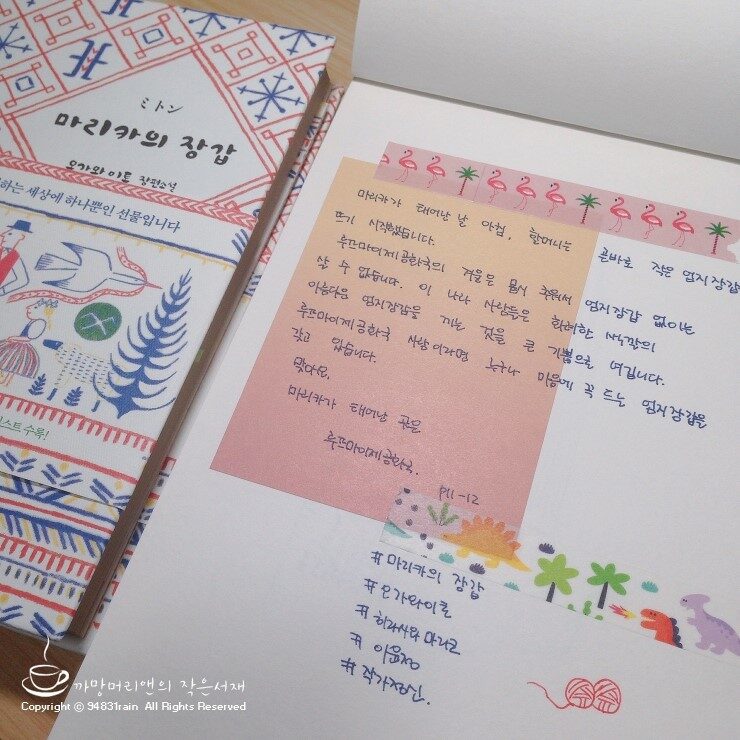 ミトン
마리카의 장갑
오가와 이토 장편소설
하는 세상에 하나뿐인 선물입니다
스트 수록!
마리카가 태어난 날 아침, 할머니는 곧바로 작은 엄지장갑
뜨기 시작했습니다.
루프마이제공화국의 겨울은 몹시 추워서 엄지장갑 없이는
살 수 없습니다. 이 나라 사람들은 화려한 색깔의
아름다운 엄지장갑을 끼는 것을 큰 기쁨으로 여깁니다.
루프마이제공화국 사람이라면 누구나 마음에 꼭 드는 엄지장갑을
갖고 있습니다.
맞아요.
마리카가 태어난 곳은
루프마이제공화국.
P11-12
#마리카의 장갑
#오가와이토
#히라사와 마리코
#이윤정
#작가정신.
까망머리앤의 작은서재
Copyright ⓒ 94831rain All Rights Reserved